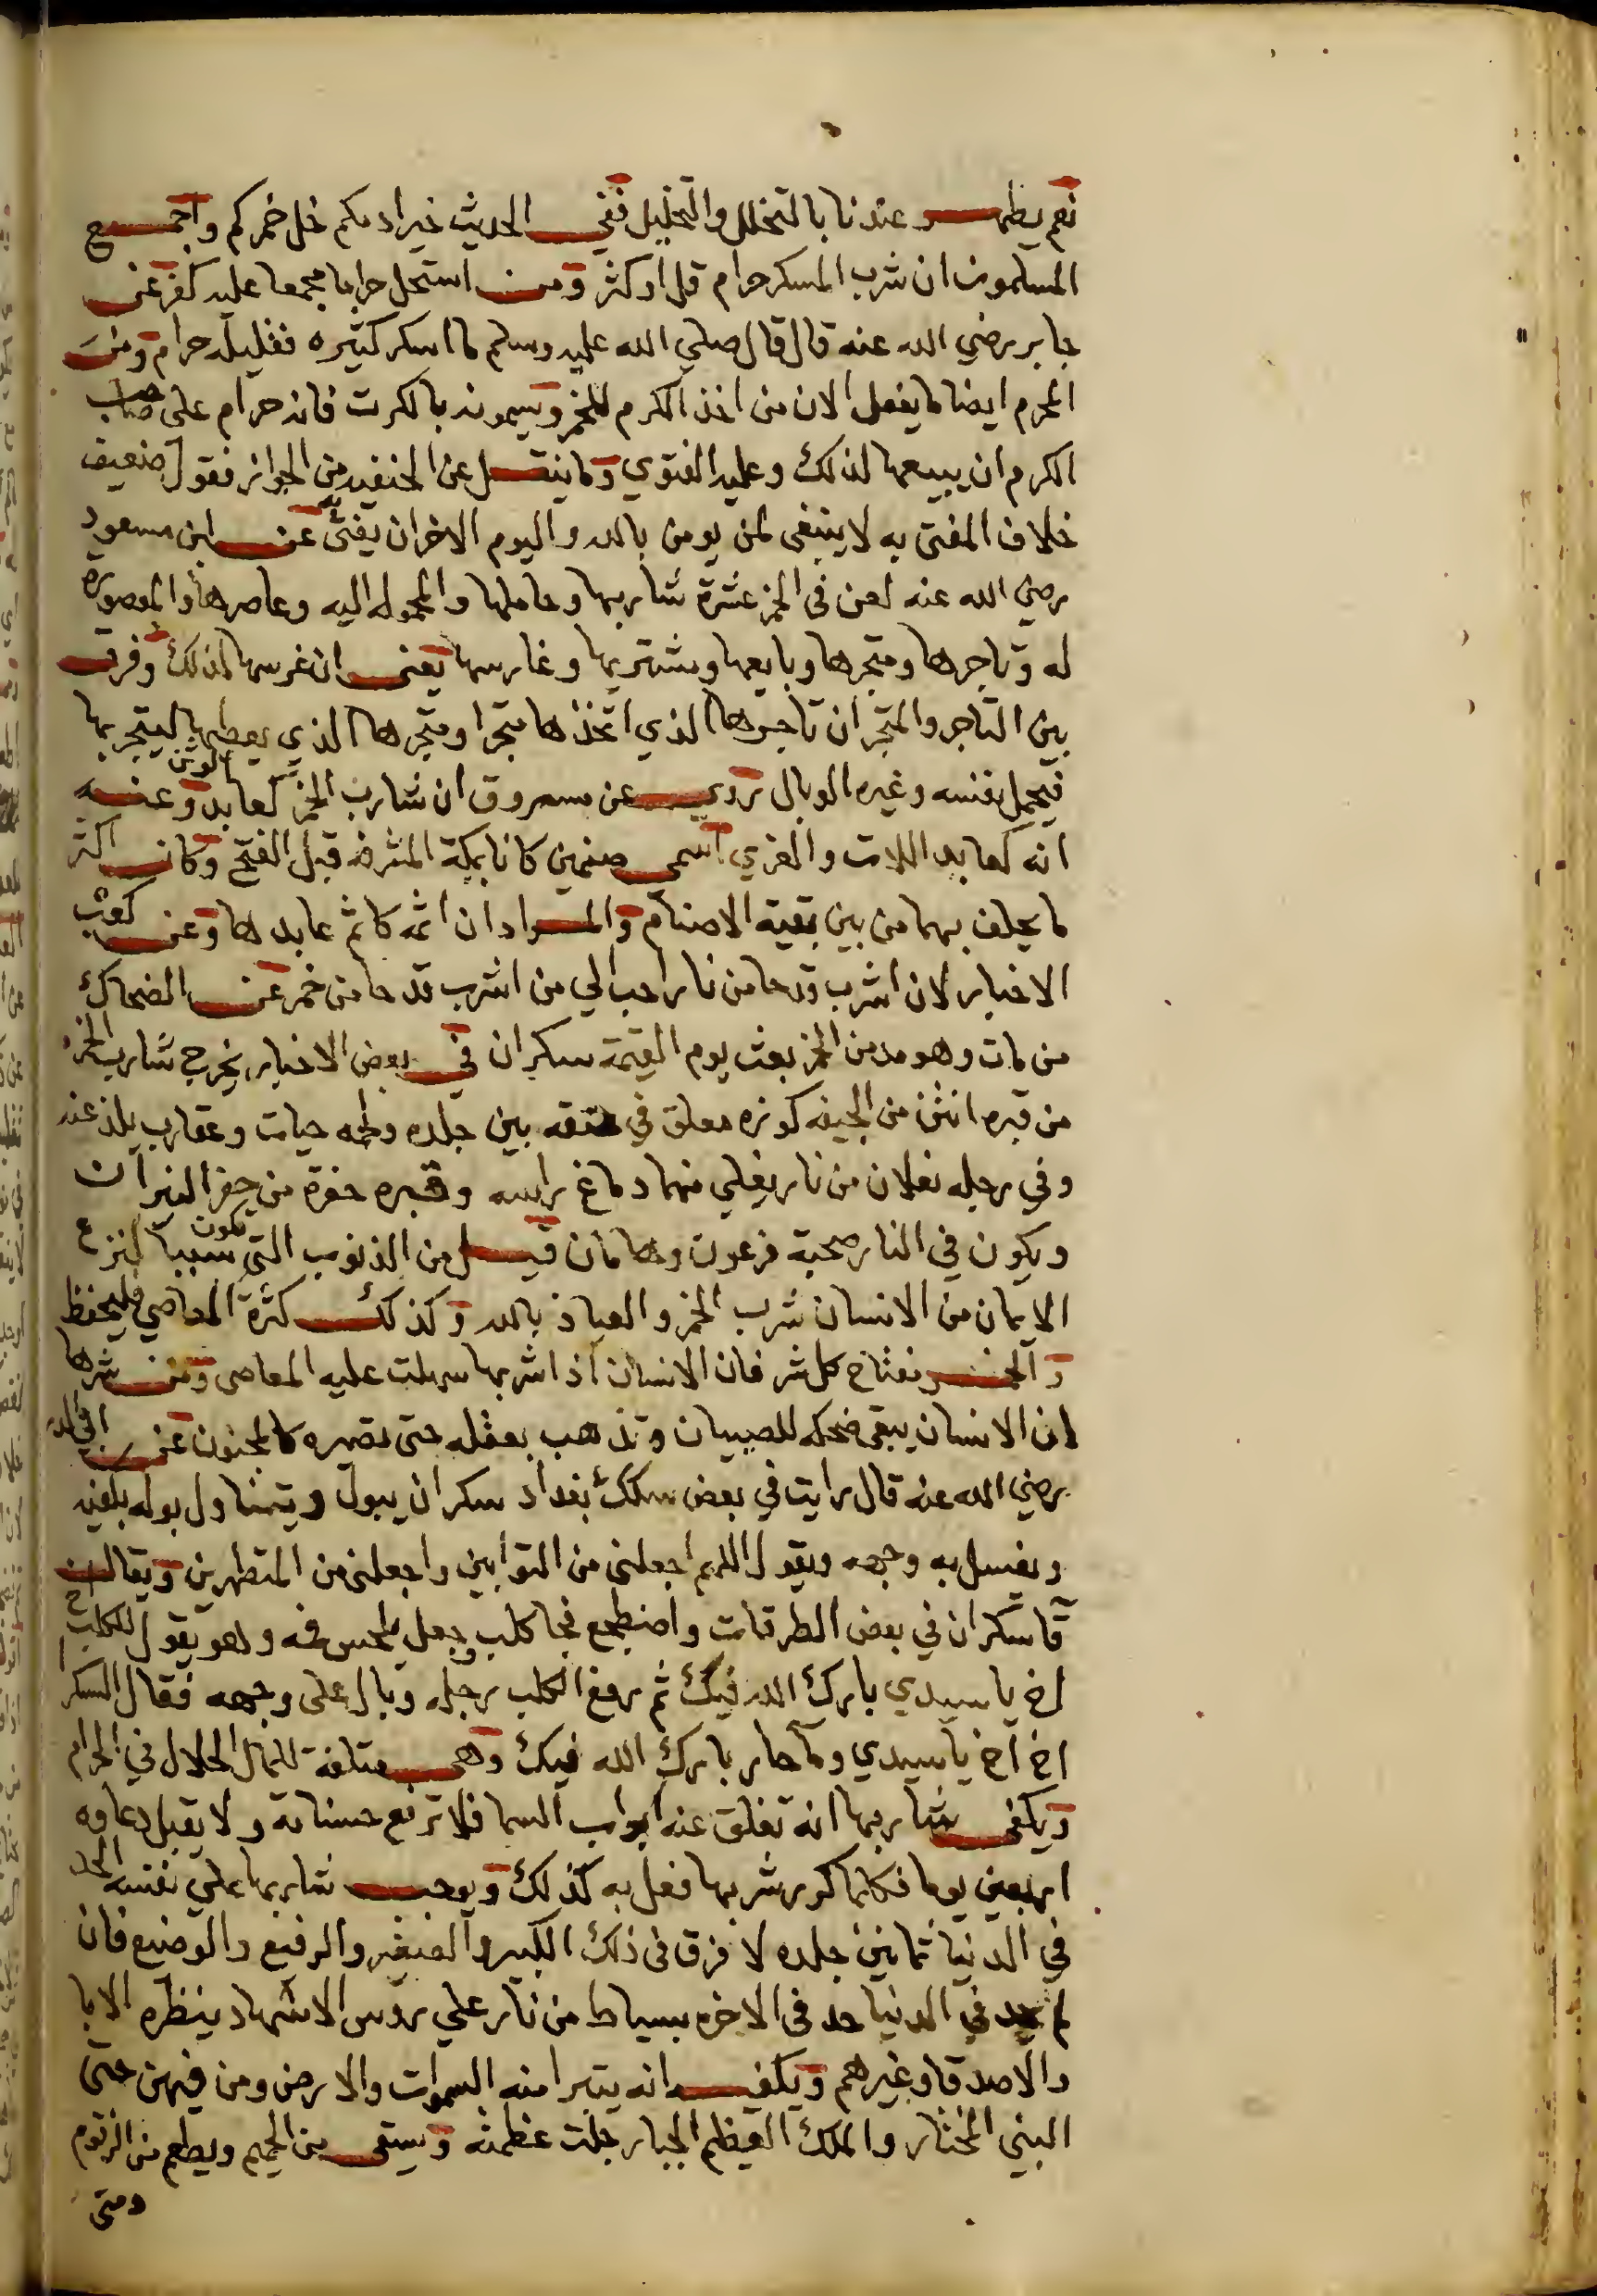 نعم يطهر عندنا بالتخلل والتخليل ففي الحديث خير ادمكم خل خمركم واجمع
المسلمون ان شرب المسكر حرام قل او كثر ومن استحل حراما مجمعا عليه كفر عن
جابر رضي الله عنه قال قال صلي الله عليه وسلم ما اسكر كثيره فقليله حرام ومن
المحرم ايضا ما يفعل الان من اخذ الكرم للخمر ويسمونه بالكرت فانه حرام على صاحب
الكرم ان يبيعها لذلك وعليه الفتوي وما ينقل عن الحنفيه من الجواز فقول ضعيف
خلاف المفتى به لا ينبغى لمن يومن بالله واليوم الاخر ان يفتى به عن ابن مسعود
رضي الله عنه لعن فى الخمر عشرة شاربها وحاملها والمحموله اليه وعاصرها والمعصوره
له وتاجرها ومتجرها وبايعها ومشتريها وغارسها يعنى ان غرسها لذلك وفرق
بين التاجر والمتجر ان تاجرها الذي اتخذها متجرا ومتجرها الذي يعطيها ليتجر بها
فيحمل نفسه وغيره الوبال روي عن مسروق ان شارب الخمر كعابد الوثن وعنه
انه كعابد اللات والعزي اسمى صنمين كانا بمكة المشرفه قبل الفتح وكان اكثر
ما يحلف بهما من بين بقية الاصنام والمراد ان اثمه كاثم عابدها وعن كعب
الاخبار لان اشرب قدحا من نار احب الي من اشرب قدحا من خمر عن الضحاك
من مات وهو مدمن الخمر بعث يوم القيمة سكران في بعض الاخبار يخرج شارب الخمر
من قبره انتن من الجيفه كوزه معلق في عنقه بين جلده ولحمه حيات وعقارب يلذعنه
وفي رجله نعلان من نار يغلي منهما دماغ راسه وقبره حفرة من حفر النيران
ويكون في النار صحبة فرعون وهامان قيل من الذنوب التي تكون سببا لنزع
الايمان من الانسان شرب الخمر والعياذ بالله وكذلك كثرة المعاصي فليحفظ
والخمر مفتاح كل شر فان الانسان اذا شربها سهلت عليه المعاصى ومن شرها
ان الانسان يبقى ضحكه للصبيان وتذهب بعقله حتى تصيره كالمجنون عن ابي الد
رضي الله عنه قال رايت في بعض سكك بغداد سكران يبول ويتناول بوله بكفيه
ويغسل به وجهه ويقول اللهم اجعلنى من التوابين واجعلنى من المتطهرين ويقال ان
قا سكران في بعض الطرقات واضطجع فجا كلب وجعل يلحس فمه وهو يقول للكلب اخ
اخ يا سيدي بارك الله فيك ثم رفع الكلب رجله وبال على وجهه فقال السكر
اخ اخ يا سيدي وما حار بارك الله فيك وهى متلفة للمال الحلال في الحرام
ويكفى شاربها انه تغلق عنه ابواب السما فلا ترفع حسناته ولا يقبل دعاوه
اربعين يوما فكلما كرر شربها فعل به كذلك ويوجب شاربها علي نفسه الحد
في الدنيا ثمانين جلده لا فرق فى ذلك الكبير والصغير والرفيع والوضيع فان
لم يحد في الدنيا حد فى الاخره بسياط من نار علي روس الاشهاد ينظره الابا
والاصدقا وغيرهم ويكفيه انه يتبرا منه السموات والارض ومن فيهن حتى
النبي المختار والملك العظيم الجبار جلت عظمته ويسقى من الحميم ويطعم من الزقوم
ومتى